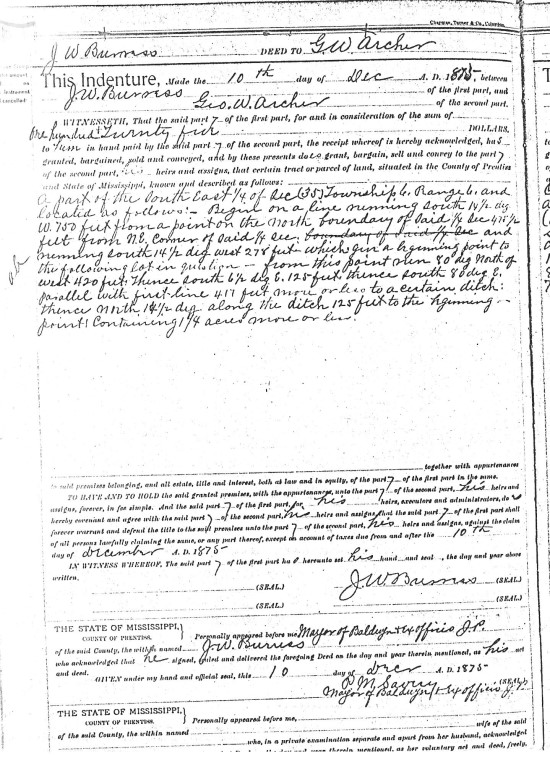 Chapman, Turner & Co., Columbus.
J W Burress DEED TO G. W. Archer
This Indenture, Made the 10th day of Dec A. D. 1875 between
J. W. Burress of the first part, and
Geo. W. Archer of the second part.
WITNESSETH, That the said part y of the first part, for and in consideration of the sum of
One hundred & Twenty five DOLLARS,
to him in hand paid by the said part y of the second part, the receipt whereof is hereby acknowledged, has
granted, bargained, sold and conveyed, and by these presents does grant, bargain, sell and convey to the part y
of the second part, his heirs and assigns, that certain tract or parcel of land, situated in the County of Prentiss
and State of Mississippi, known and described as follows:
A part of the South East 1/4 of Sec (35) Township 6. Range 6. and
located as follows:- Begin on a line running south 14 1/2 deg
W. 750 feet from a point on the North boundary of said 1/4 Sec
feet from N.E. Corner of said 1/4 sec. boundary of said 1/4 Sec and
running south 14 1/2 deg west 278 feet which gives a beginning point to
the following lot in question - from this point run 80 deg North of
west 420 feet. Thence south 6 1/2 deg E. 125 feet thence south 80 deg E.
parallel with first line 417 feet more or less to a certain ditch:
thence North 14 1/2 deg along the ditch 125 feet to the beginning
point! Containing 1 1/4 acres more or less.
together with appurtenances
to said premises belonging, and all estate, title and interest, both as law and in equity, of the part y of the first part in the same.
TO HAVE AND TO HOLD the said granted premises, with the appurtenances, unto the part y of the second part, his heirs and
assigns, forever, in fee simple. And the said part y of the first part, for his heirs, executors and administrators, do
hereby covenant and agree with the said part y of the second part, his heirs and assigns that the said part y of the first part shall
forever warrant and defend the title to the said premises unto the part y of the second part, his heirs and assigns, against the claim
of all persons lawfully claiming the same, or any part thereof, except on account of taxes due from and after the 10th
day of December A. D. 1875
IN WITNESS WHEREOF, The said part y of the first part ha hereunto set his hand and seal, the day and year above
written.
(SEAL.) J W Burress (SEAL)
(SEAL.) (SEAL.)
THE STATE OF MISSISSIPPI,
COUNTY OF PRENTISS. Personally appeared before me Mayor of Baldwyn & Ex officio J.P.
of the said County, the within named J. W. Burress
who acknowledged that he signed, sealed and delivered the foregoing Deed on the day and year therein mentioned, as his act
and deed.
GIVEN under my hand and official seal, this 10 day of Decr A. D. 1875
P. M. Savery (SEAL)
Mayor of Baldwyn & Ex officio J. P.
THE STATE OF MISSISSIPPI,
COUNTY OF PRENTISS. Personally appeared before me,
of the said County, the within named wife of the said
who, in a private examination separate and apart from her husband, acknowledged
day and year therein mentioned, as her voluntary act and deed, freely,